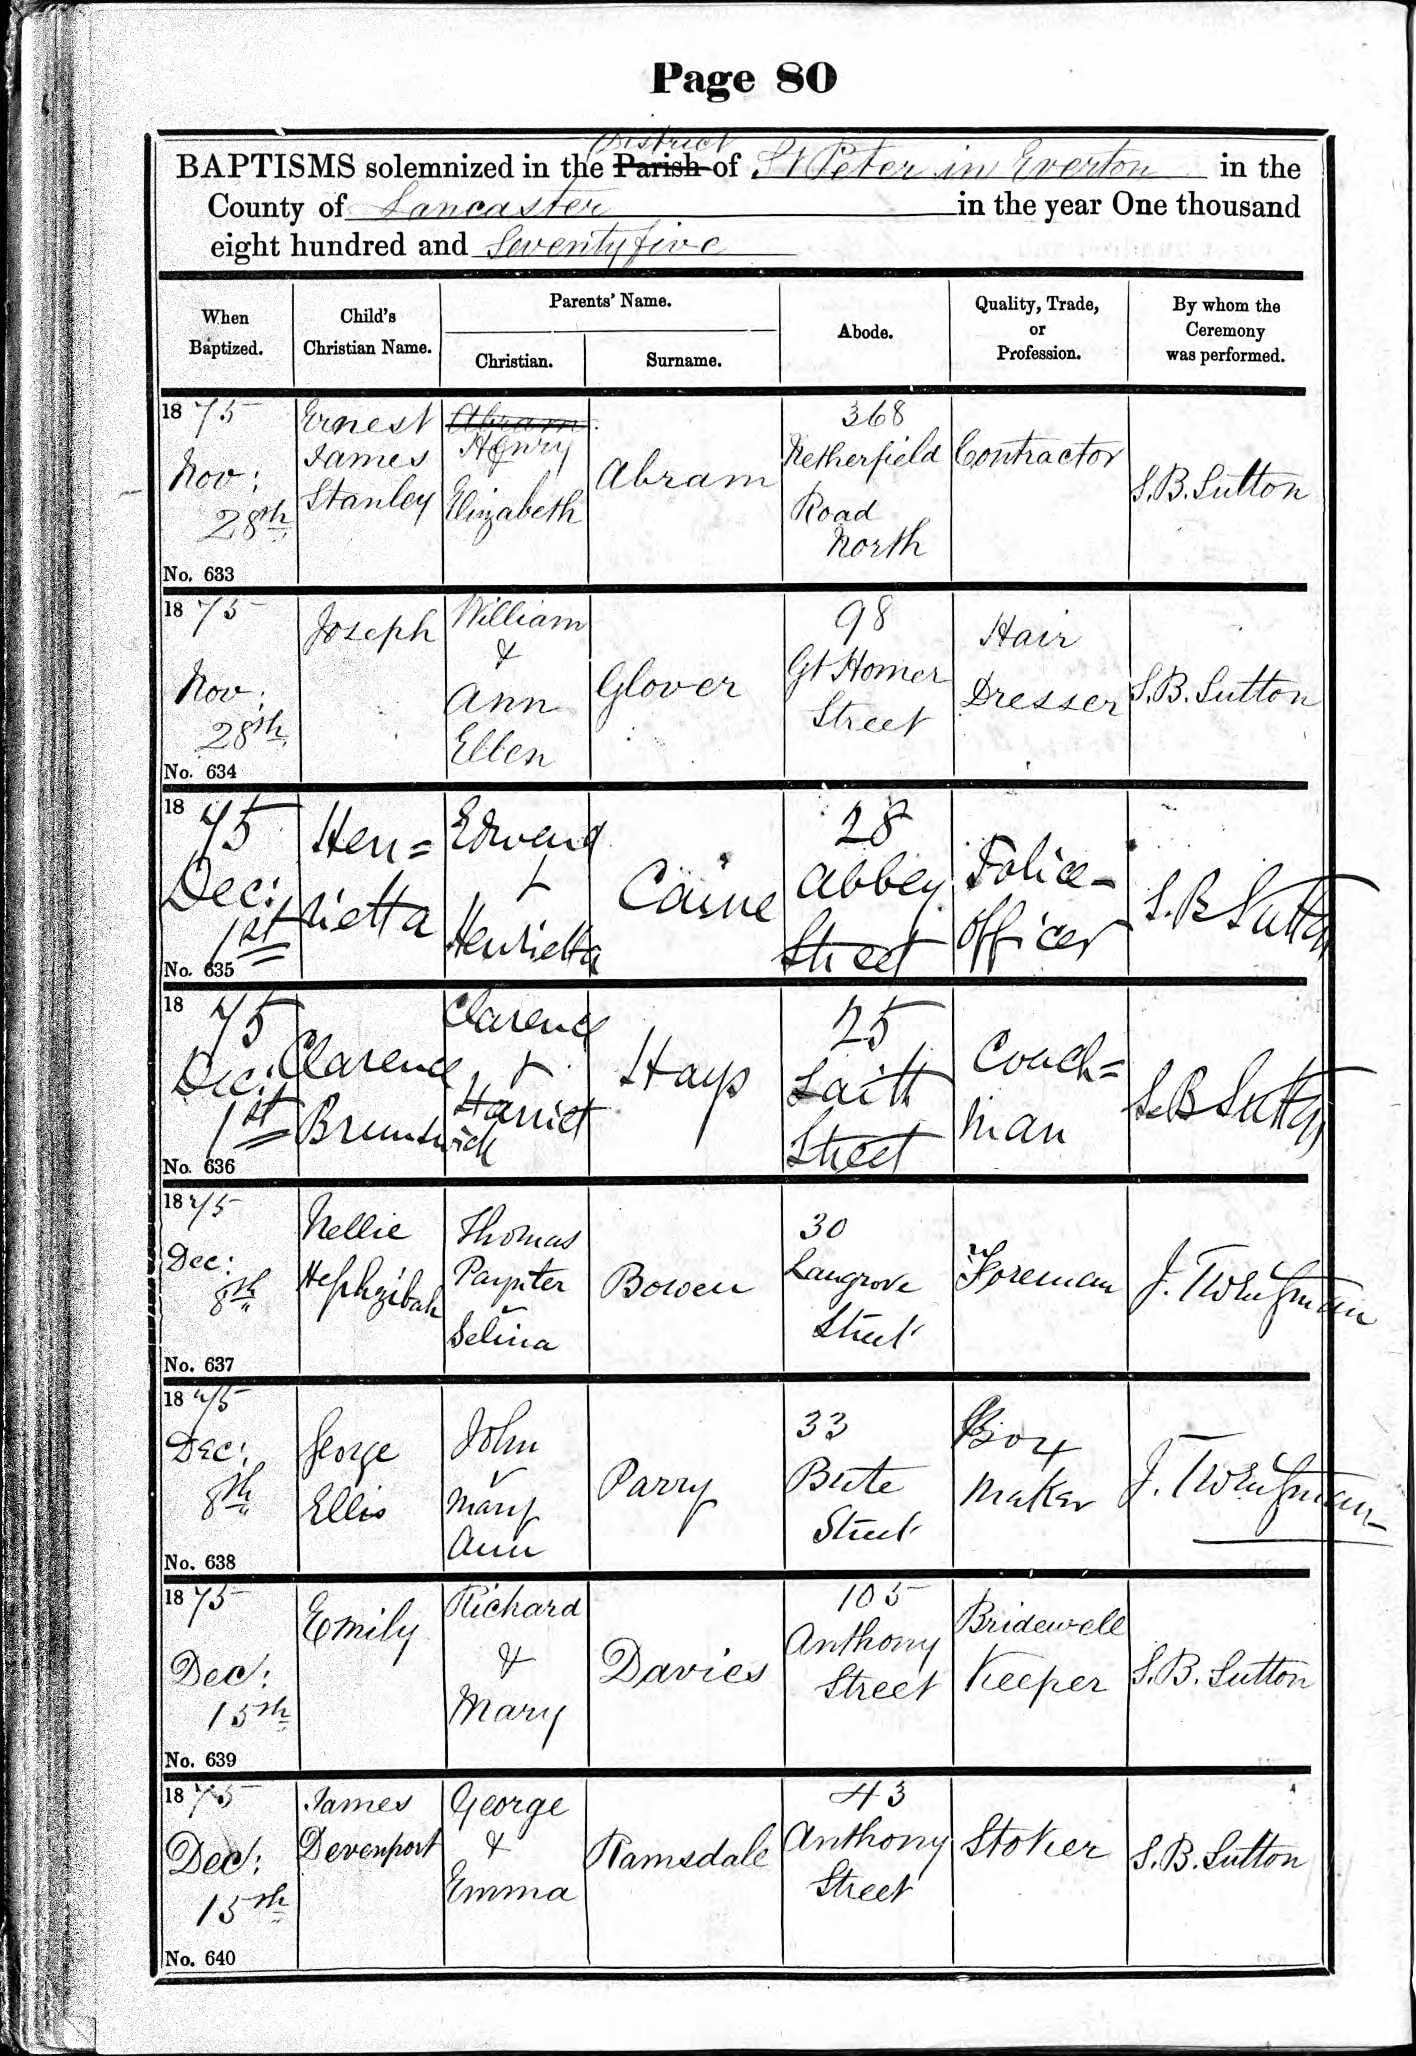 Page 80
District
BAPTISMS solemnized in the Parish of St Peter in Everton in the
County of Lancaster in the year One thousand
eight hundred and Seventy five
When Baptized.
Child's Christian Name.
Parents' Name.
Christian.
Surname.
Abode.
Quality, Trade, or Profession.
By whom the Ceremony was performed.
1875
Nov:
28th
No. 633
Ernest
James
Stanley
Abram
Henry
Elizabeth
Abram
368
Netherfield
Road
North
Contractor
S.B. Sutton
1875
Nov:
28th
No. 634
Joseph
William
&
Ann
Ellen
Glover
98
Gt Homer
Street
Hair
Dresser
S.B. Sutton
1875
Dec:
1st
No. 635
Hen=
rietta
Edward
+
Henrietta
Caine
28
Abbey
Street
Police-
Officer
S.B Sutton
1875
Dec:
1st
No. 636
Clarence
Brunswick
Clarence
+
Harriet
Hays
25
Street
Coach=
man
S.B Sutton
1875
Dec:
8th
No. 637
Nellie
Hephzibah
Thomas
Paynter
Selina
Bowen
30
Langrove
Street
Foreman
J.
1875
Dec:
8th
No. 638
George
Ellis
John
Mary
Ann
Parry
33
Bute
Street
Box
Maker
J.
1875
Dec:
15th
No. 639
Emily
Richard
&
Mary
Davies
105
Anthony
Street
Bridewell
Keeper
S.B. Sutton
1875
Dec:
15th
No. 640
James
Devenport
George
&
Emma
Ramsdale
43
Anthony
Street
Stoker
S.B. Sutton